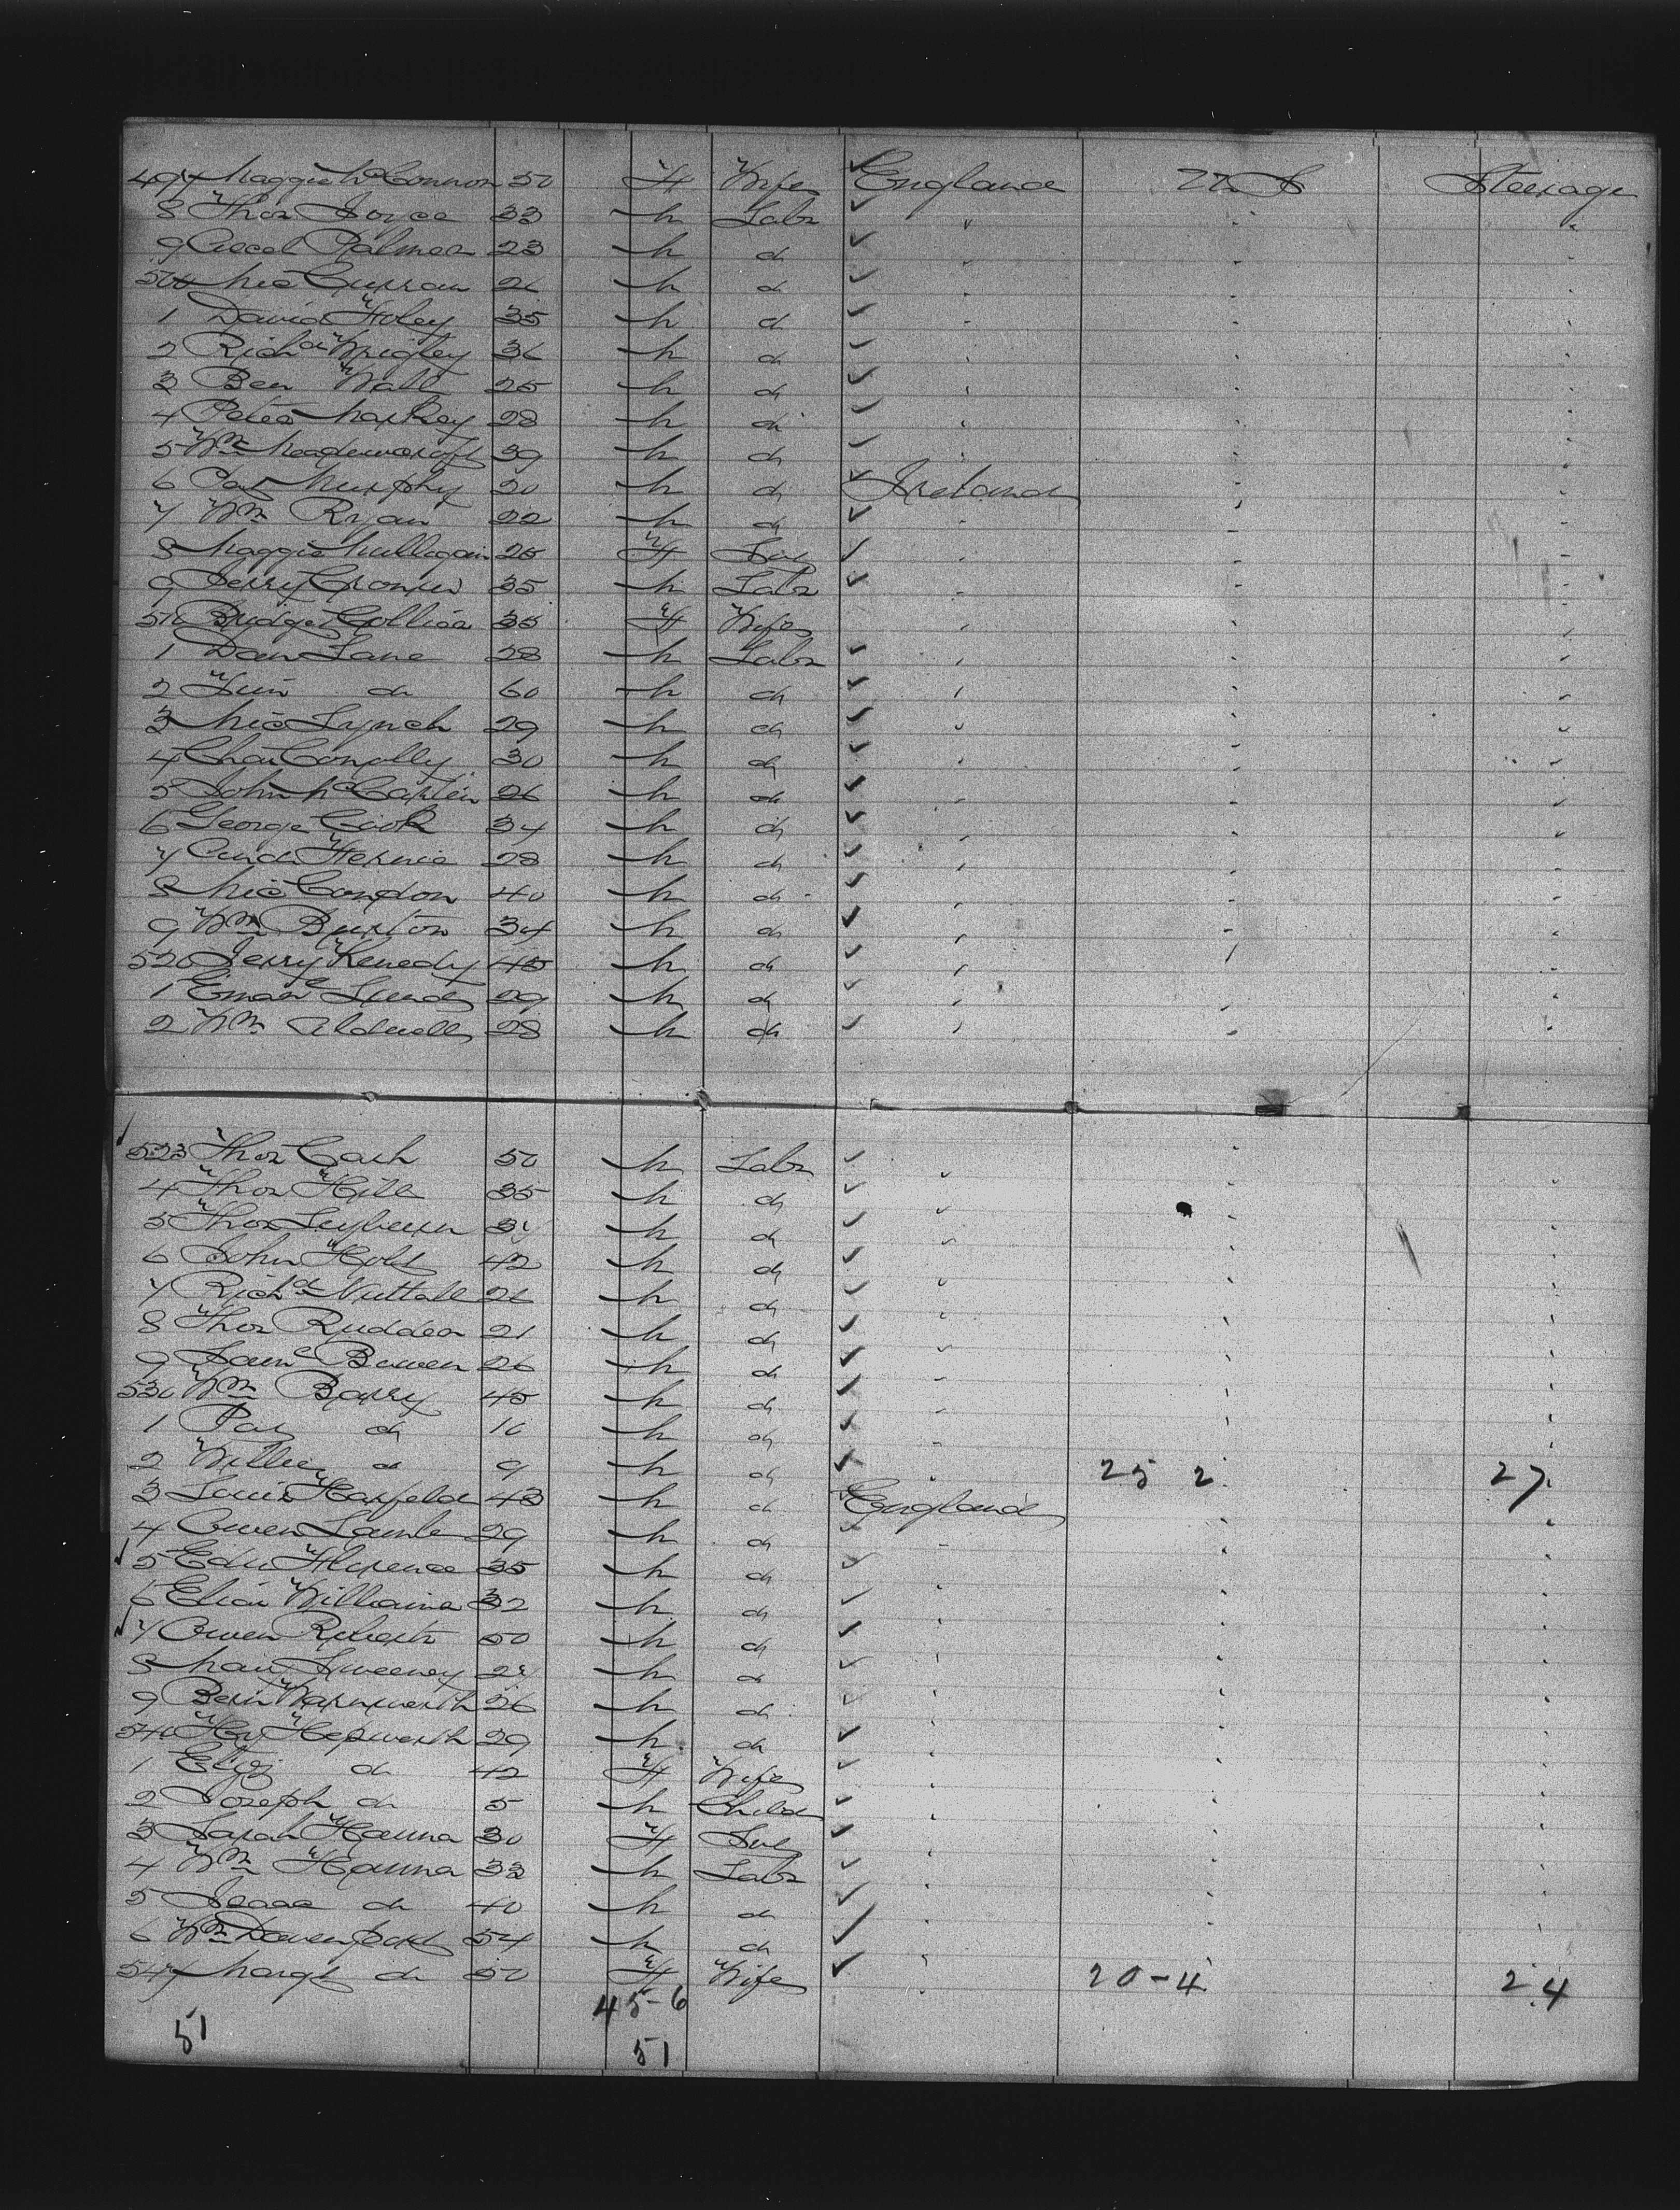 497 Maggie McConnor 50 F Wife England U.S Steerage
8 Thos Joyce 33 M Labr " " "
9 Palmer 23 M do " " "
500 Mic Curran 26 M do " " "
1 David Foley 35 M do " " "
2 Richd Wrigley 36 M do " " "
3 Ben Wall 25 M do " " "
4 Peter Markey 28 M do " " "
5 Wm 39 M do " " "
6 Pat Murphy 20 M do Ireland " "
7 Wm Ryan 22 M do " " "
8 Maggie Mulligan 25 F " " "
9 Jerry Cronin 35 M Labr " " "
510 Bridget 35 F Wife " " "
1 Dan Lane 28 M Labr " " "
2 Tim do 60 M do " " "
3 Mic Lynch 29 M do " " "
4 Chas Conolly 30 M do " " "
5 John McCartin 26 M do " " "
6 George Cook 34 M do " " "
7 28 M do " " "
8 Mic Condon 40 M do " " "
9 Wm Burton 34 M do " " "
520 Jerry Kenedy 45 M do " " "
1 29 M do " " "
2 Wm Aldwell 28 M do " " "
523 Thos Cash 50 M Labr " " "
4 Thos Hill 35 M do " " "
5 Thos M do " " "
6 John Holt 42 M do " " "
7 Richd Nuttall 26 M do " " "
8 Thos Rudden 21 M do " " "
9 Saml Bowen 26 M do " " "
530 Wm Barry 45 M do " " "
1 Pat do M do " " "
2 Willie do 9 M do " 25 2 27
3 Louis 43 M do England " "
4 Owen Lamb 29 M do " " "
5 Florence 35 M do " " "
6 Williams 32 M do " " "
7 Owen Roberts 50 M do " " "
8 Sweeney M do " " "
9 Benj 26 M do " " "
540 Hy Hepworth 29 M do " " "
1 Eliza do 42 F Wife " " "
2 Joseph do 5 M Child " " "
3 Sarah Hanna 30 F " " "
4 Wm Hanna 33 M Labr " " "
5 Isaac do 40 M do " " "
6 Wm Davenport 54 M do " " "
547 Margt do 50 F Wife " 20-4 24
45-6
51 51